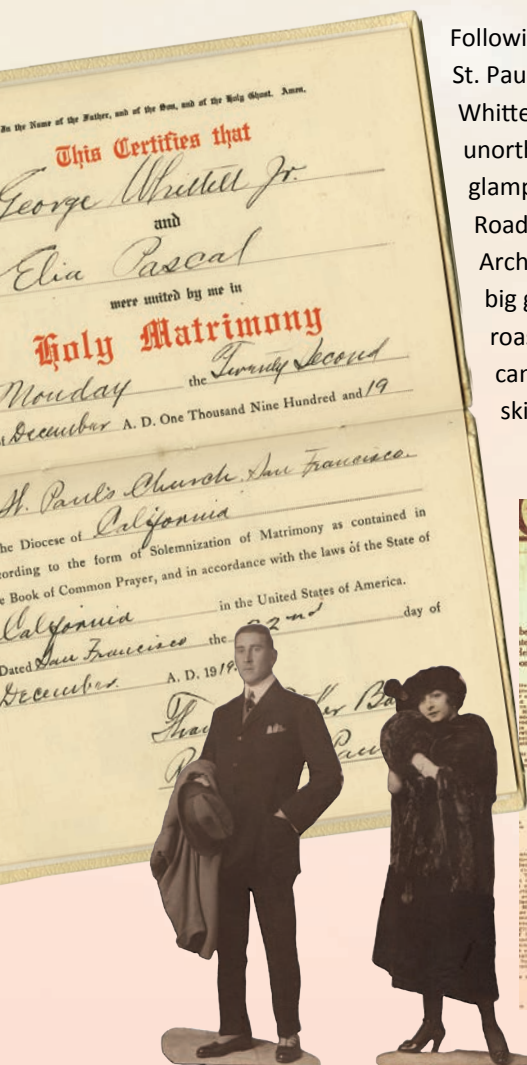 In the Name of the Father, and of the Son, and of the Holy Ghost. Amen.
This Certifies that
George Whittell Jr.
and
Elia Pascal
were united by me in
Holy Matrimony
Monday the Twenty Second
December A. D. One Thousand Nine Hundred and 19
St. Paul's Church San Francisco
the Diocese of California
according to the form of Solemnization of Matrimony as contained in
Book of Common Prayer, and in accordance with the laws of the State of
California in the United States of America.
Dated San Francisco the 22nd day of
December. A. D. 1919.
Followi
St. Pau
Whitte
unorth
glamp
Road
Arch
big g
roas
can
ski